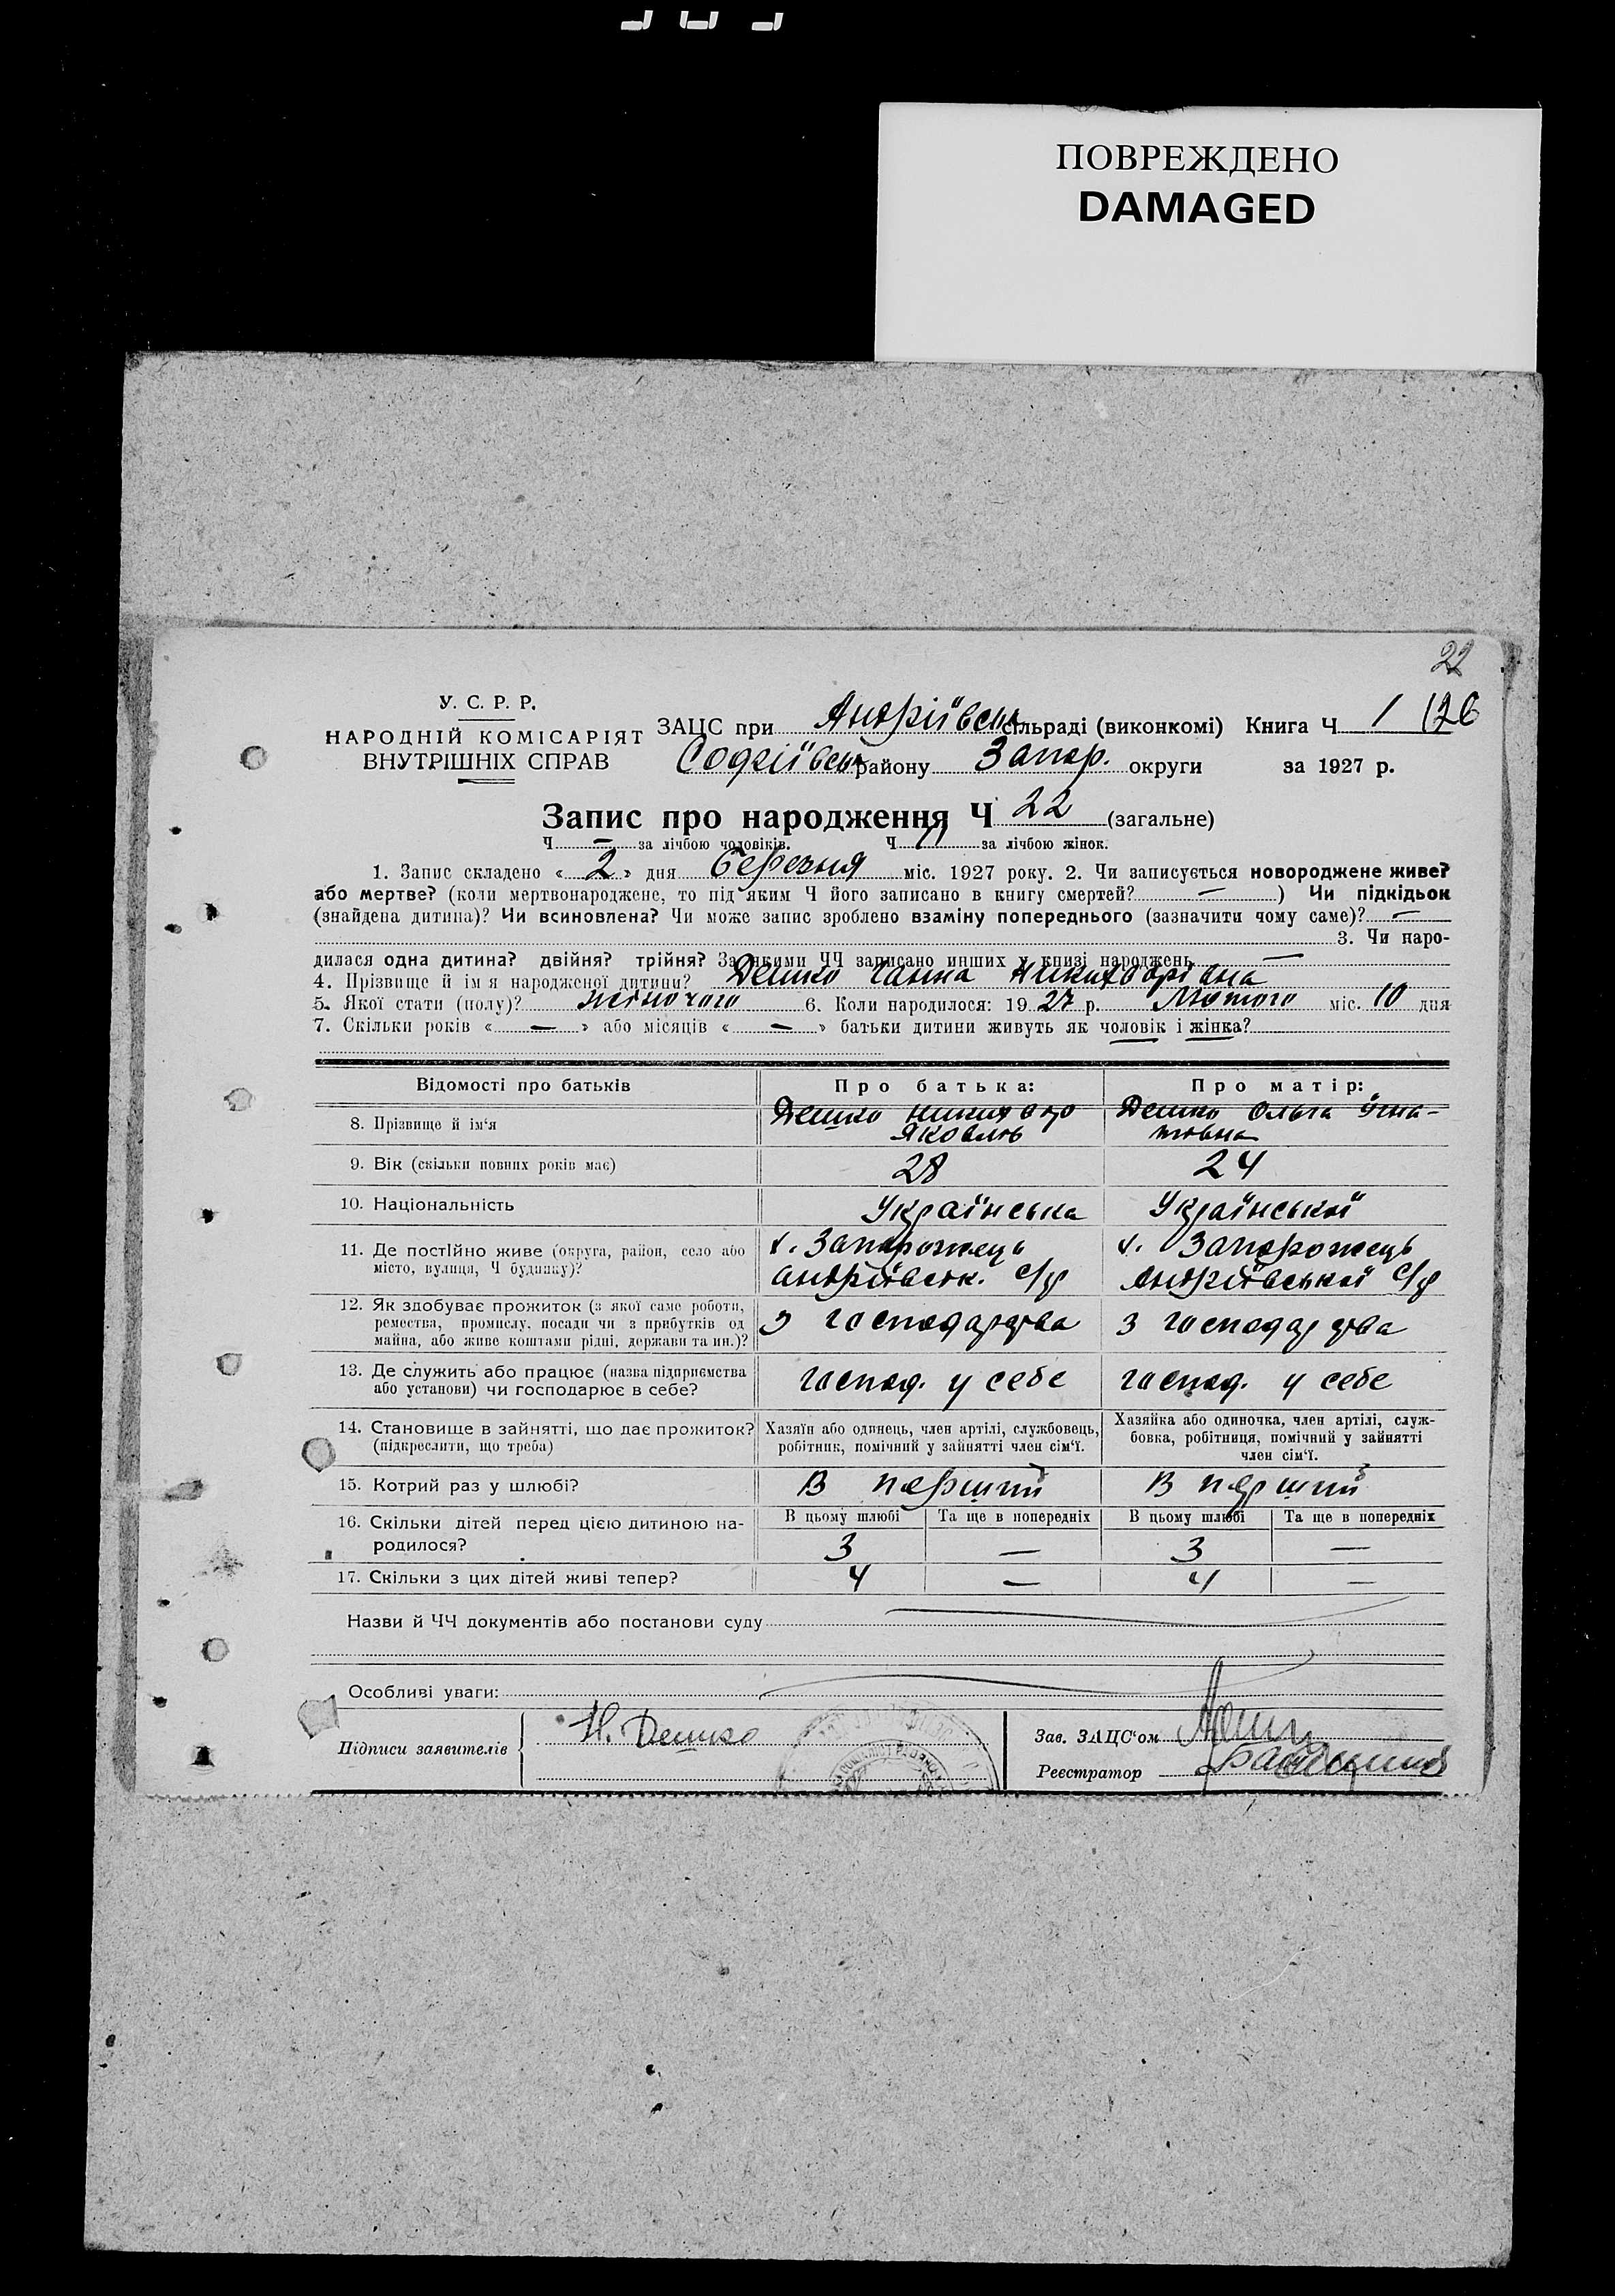 ПОВРЕЖДЕНО
DAMAGED
22
У. С. Р. Р.
НАРОДНІЙ КОМІСАРІЯТ
ВНУТРІШНІХ СПРАВ
ЗАЦС при Андріївськ сільраді (виконкомі) Книга Ч 1
Софіївськ району Запор. округи за 1927 р.
Запис про народження Ч 22 (загальне)
Ч — за лічбою чоловіків. Ч 11 за лічбою жінок.
1. Запис складено «2» дня Березня міс. 1927 року. 2. Чи записується новороджене живе?
або мертве? (коли мертвонароджене, то під яким Ч його записано в книгу смертей? —) Чи підкідьок
(знайдена дитина)? Чи всиновлена? Чи може запис зроблено взаміну попереднього (зазначити чому саме)? —
3. Чи наро-
дилася одна дитина? двійня? трійня? За якими ЧЧ записано инших у книзі народжень —
4. Прізвище й ім'я народженої дитини? Дешко Ганна Никифорівна
5. Якої стати (полу)? жіночого 6. Коли народилося: 1927 р. Лютого міс. 10 дня
7. Скільки років « — » або місяців « — » батьки дитини живуть як чоловік і жінка?
Відомості про батьків Про батька: Про матір:
8. Прізвище й ім'я Дешко Никифор Яковлів Дешко Ольга
9. Вік (скільки повних років має) 28 24
10. Національність Українська Української
11. Де постійно живе (округа, район, село або місто, вулиця, Ч будинку)? х. Запорожець Андріївськ. с/р х. Запорожець Андріївської с/р
12. Як здобуває прожиток (з якої саме роботи, ремества, промислу, посади чи з прибутків од майна, або живе коштами рідні, держави та ин.)? З господарства З господарства
13. Де служить або працює (назва підприємства або установи) чи господарює в себе? господ. у себе господ. у себе
14. Становище в зайнятті, що дає прожиток? (підкреслити, що треба) Хазяїн або одинець, член артілі, службовець, робітник, помічний у зайнятті член сім'ї. Хазяйка або одиночка, член артілі, служ-бовка, робітниця, помічний у зайнятті член сім'ї.
15. Котрий раз у шлюбі? В перший В перший
16. Скільки дітей перед цією дитиною на-родилося? В цьому шлюбі Та ще в попередніх В цьому шлюбі Та ще в попередніх
3 — 3 —
17. Скільки з цих дітей живі тепер? 4 — 4 —
Назви й ЧЧ документів або постанови суду
Особливі уваги:
Підписи заявителів Н. Дешко
Зав. ЗАЦС'ом
Реєстратор